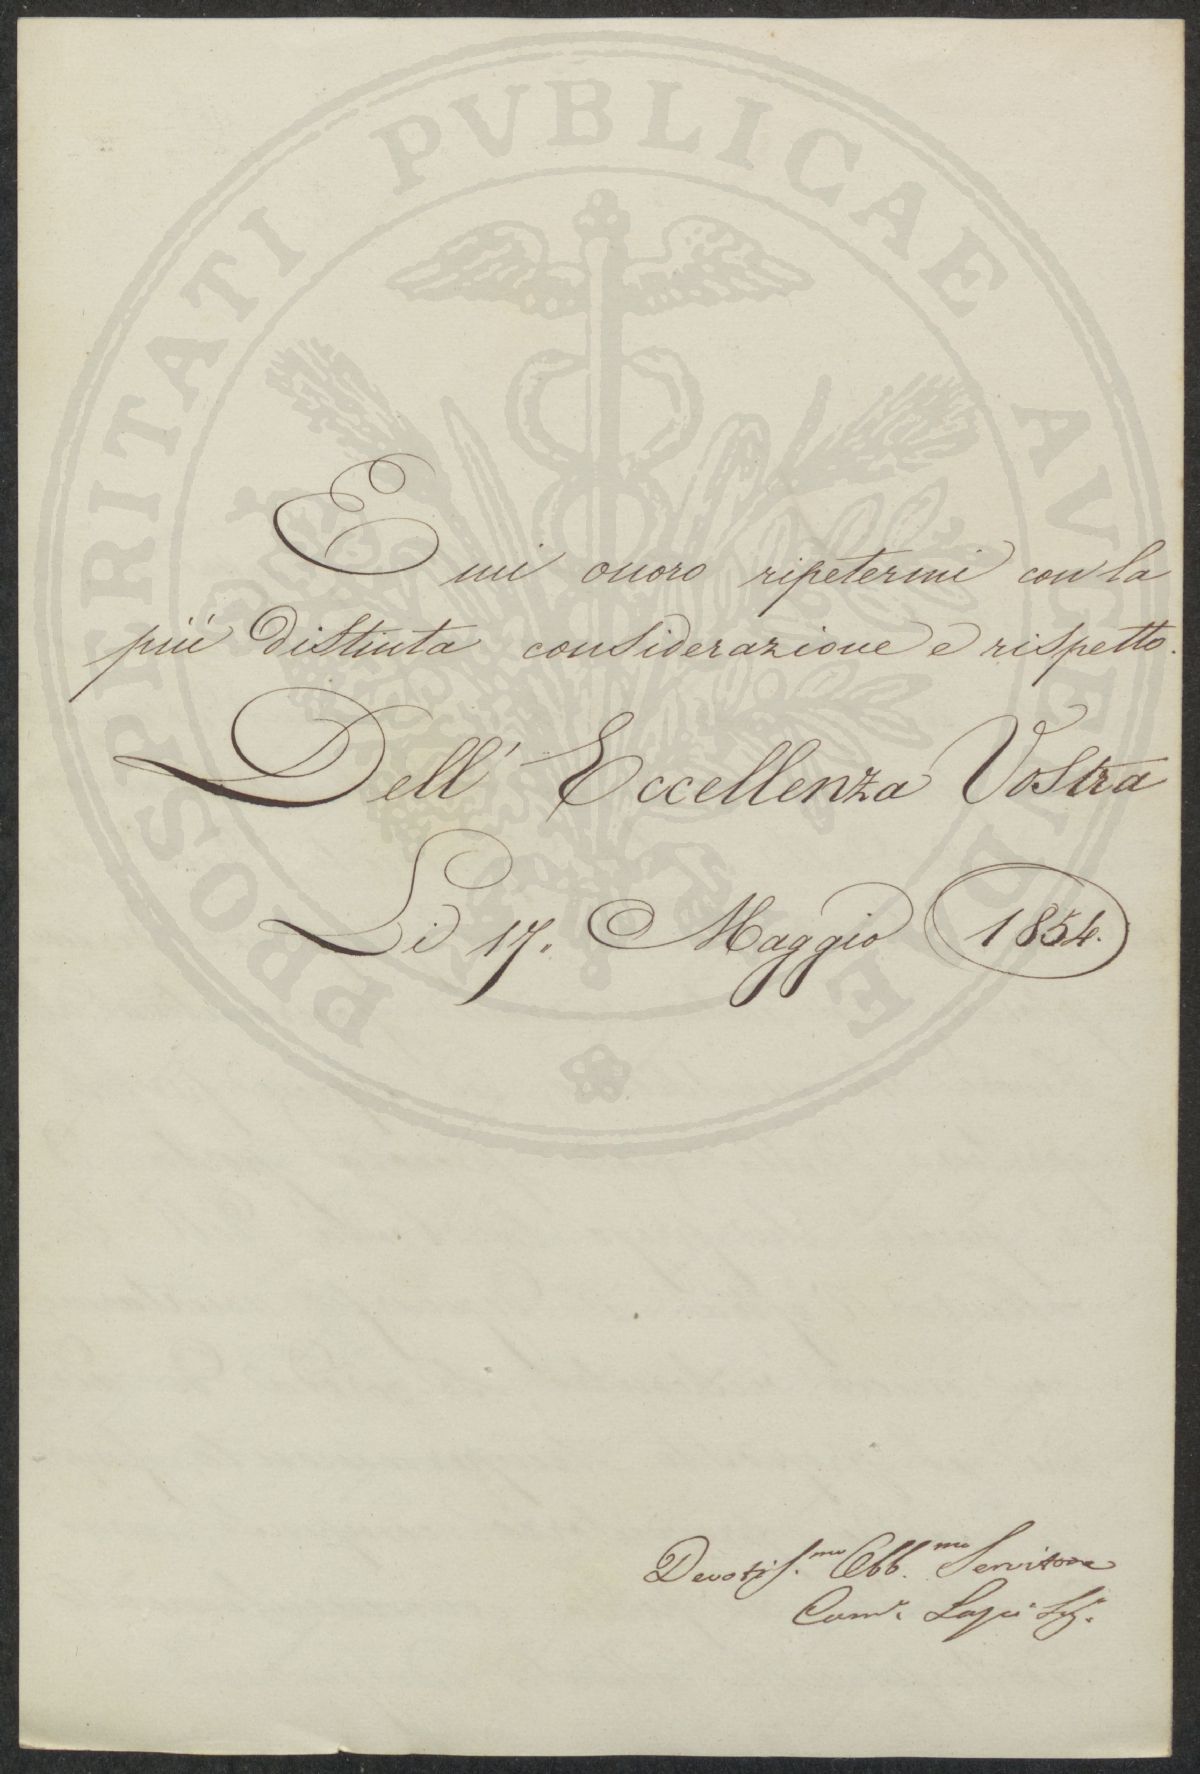 PROSPERITATI PVBLICAE AVGENDAE
E mi onoro ripetermi con la
più distinta considerazione e rispetto.
Dell' Eccellenza Vostra
Li 17. Maggio 1854.
Devotiss.mo Obb.mo Servitore